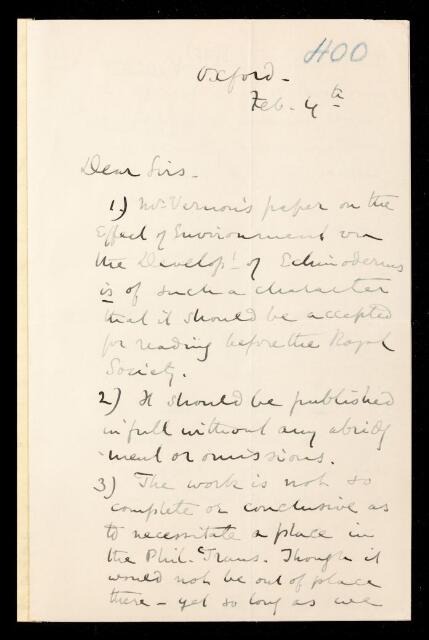 400
Oxford -
Feb. 4th
Dear Sirs -
1.) Mr. Vernon's paper on the
Effect of Environment on
the Developt. of Echinoderms
is of such a character
that it should be accepted
for reading before the Royal
Society.
2) It should be published
in full without any abridg
-ment or omissions.
3) The work is not so
complete or conclusive as
to necessitate a place in
the Phil. Trans. Though it
would not be out of place
there - yet so long as we